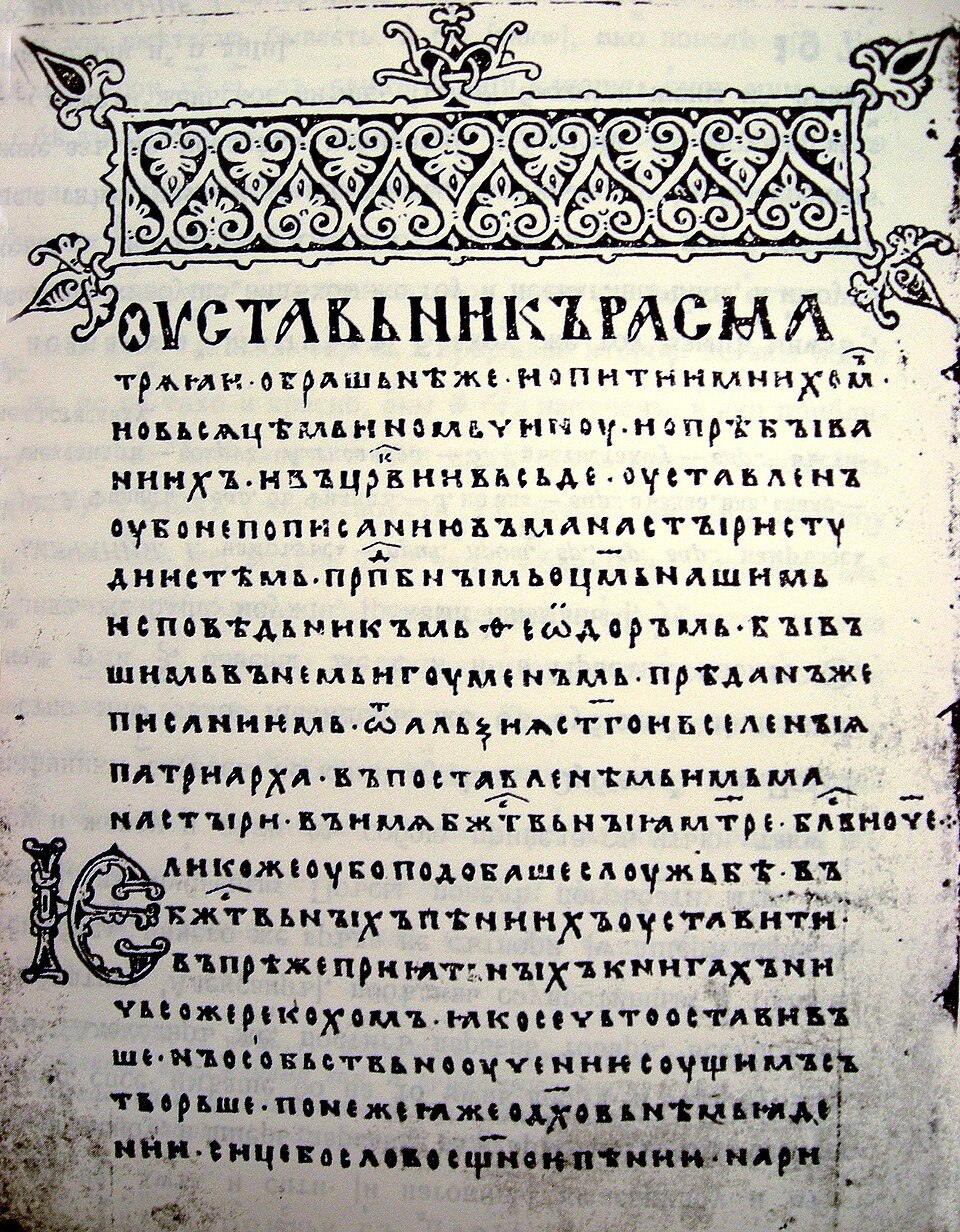 ОУСТАВЬНИКЪРАСМА
ТРѦꙖИ·ОБРАШЬНѢЖЕ·НОПИТИИМНИХОМ҃Ъ·
НОВЬСѦЦѢМЬИНОМЬУИНОУ·НОПРѢБЪІВА
НИИХЪ·ИВЪЦР҃КВИИВЬСЬДЕ·ОУСТАВЛЕНЪ
ОУБОНЕПОПИСАНИЮВЪМАНАСТЪІРИСТУ
ДИИСТѢМЬ·ПРП҃ДБНЪІМЬОЦ҃МЬНАШИМЬ
ИСПОВѢДЬНИКЪМЬ·ѲЕѠДОРЪМЬ·БЪІВЪ
ШИМЬВЪНЕМЬИГОУМЕНЪМЬ·ПРѢДАНЪЖЕ
ПИСАНИИМЬ·Ѿ҃АЛЬѮИꙖСТ҃ГОИВСЕЛЕНЪІꙖ
ПАТРИАРХА·ВЪПОСТАВЛЕНѢМЬИМЬМА
НАСТЪІРИ·ВЪИМѦБЖ҃СТВЬНЪІꙖМТ҃РЕ·БЛ҃СВИОУ҃Е·
ѤЛИКОЖЕОУБОПОДОБАШЕСЛОУЖЬБѢ·ВЪ
БЖ҃СТВЬНЪІХЪПѢНИИХЪОУСТАВИТИ
ВЪПРѢЖЕПРИꙖТЪНЪІХЪКНИГАХЪНИ
УЬСОЖЕРЕКОХОМЪ·ꙖКОСЕУЬТООСТАВИВЪ
ШЕ·НЪОСОБЬСТВЬНООУУЕНИИСОУЩИМЪСЪ
ТВОРЬШЕ·ПОНЕЖЕꙖЖЕОДХ҃ОВЬНѢМЬꙖДЕ
НИИ·СИЦЕВОСЛОВОСЩ҃НОИПѢНИИ·НАРИ